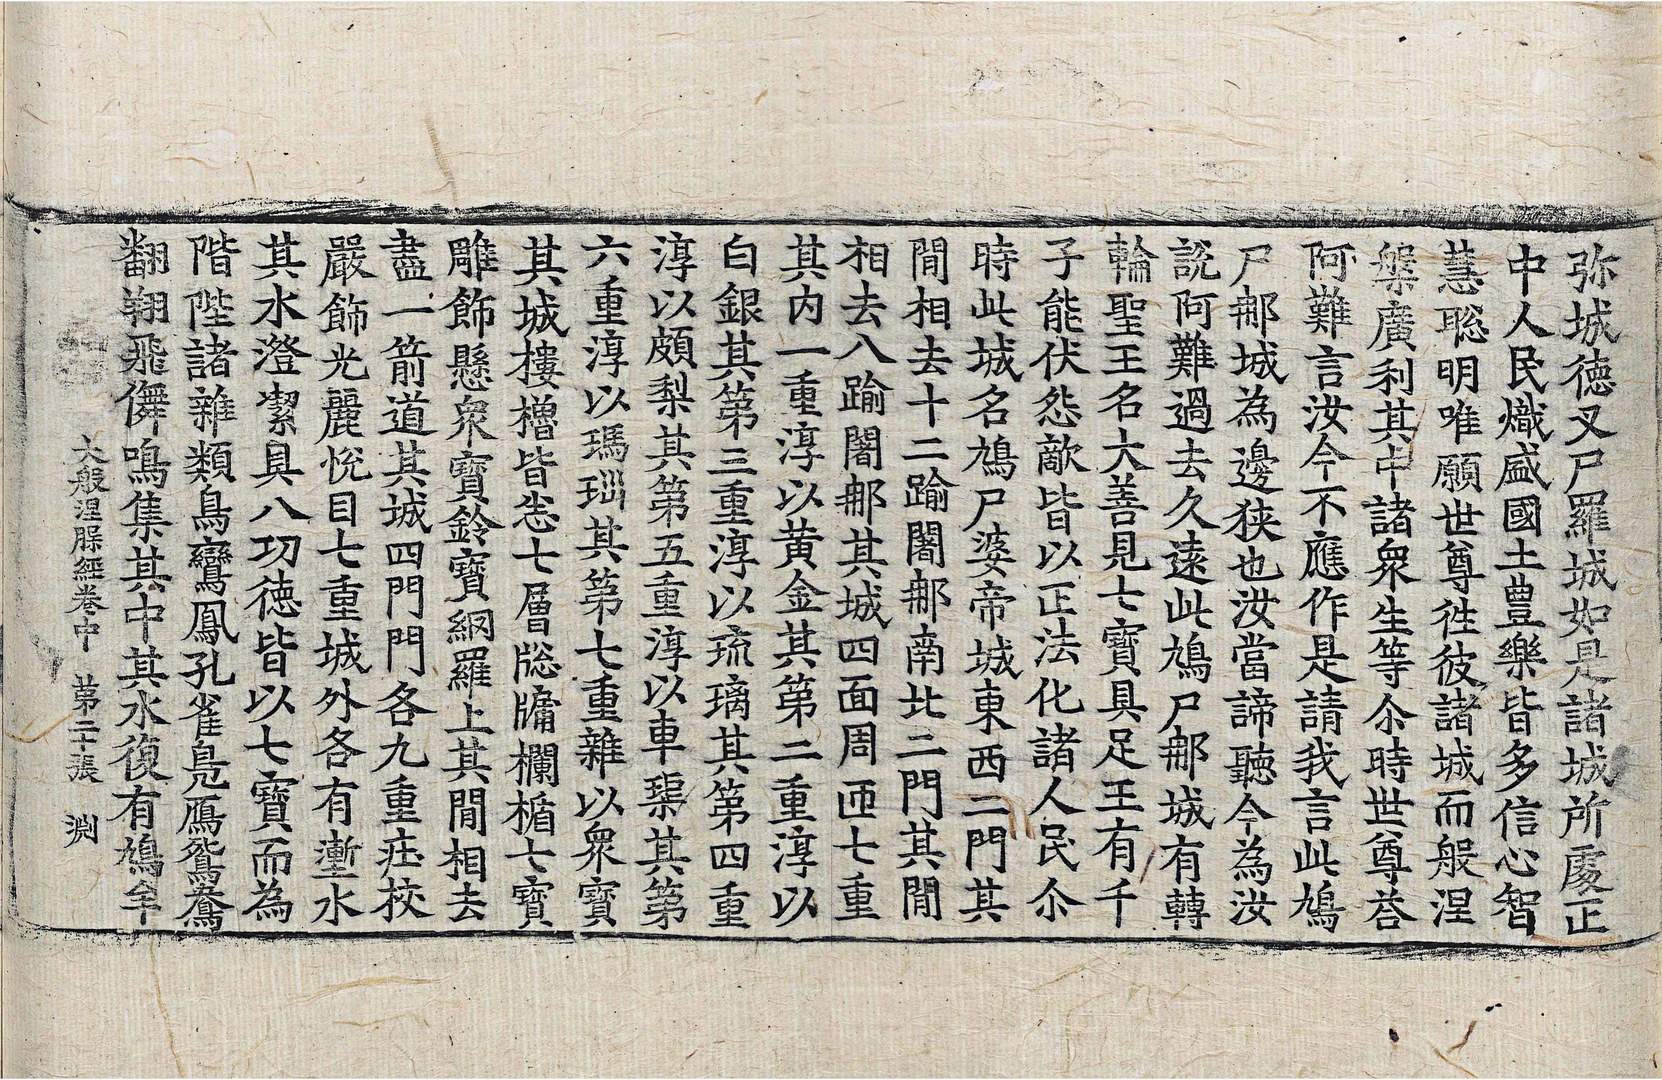 弥城德叉尸羅城如是諸城所處正
中人民熾盛國土豊樂皆多信心智
慧聡明唯願世尊徃彼諸城而般涅
槃廣利其中諸衆生等尒時世尊荅
阿難言汝今不應作是請我言此鳩
尸郍城為邊狹也汝當諦聽今為汝
說阿難過去久遠此鳩尸郍城有轉
輪聖王名大善見七寶具足王有千
子能伏怨敵皆以正法化諸人民尒
時此城名鳩尸婆帝城東西二門其
間相去十二踰闍郍南北二門其間
相去八踰闍郍其城四面周迊七重
其内一重淳以黄金其第二重淳以
白銀其第三重淳以琉璃其第四重
淳以頗梨其第五重淳以車𤦲其第
六重淳以瑪瑙其第七重雜以衆寶
其城樓櫓皆悉七層牎牖欄楯七寶
雕飾懸衆寶鈴寶網羅上其間相去
盡一箭道其城四門門各九重庄挍
嚴飾光麗悅目七重城外各有壍水
其水澄潔具八功德皆以七寶而為
階陛諸雜類鳥鸞鳳孔雀鳧鴈鴛鴦
翻翔飛儛鳴集其中其水復有鳩牟
大般涅槃經卷中 第二十張 淵